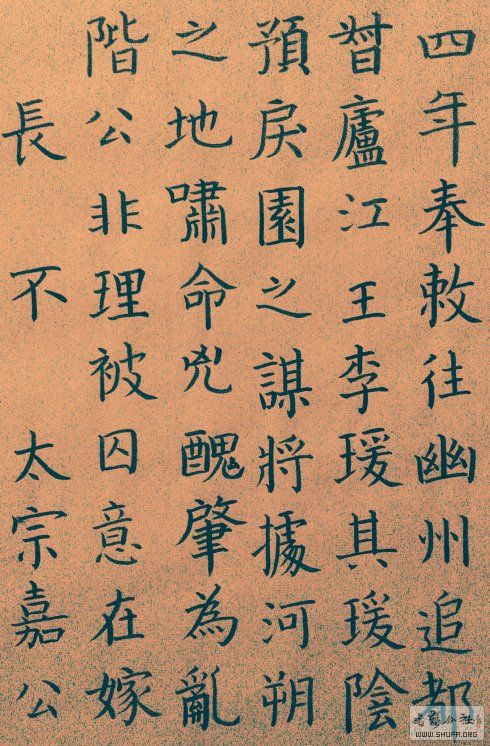 四年奉敕往幽州追都
督廬江王李瑗其瑗陰
預戾園之謀將據河朔
之地嘯命兇醜肇為亂
階公非理被囚意在嫁
長 不 太宗嘉公
WWW.SHUFA.ORG